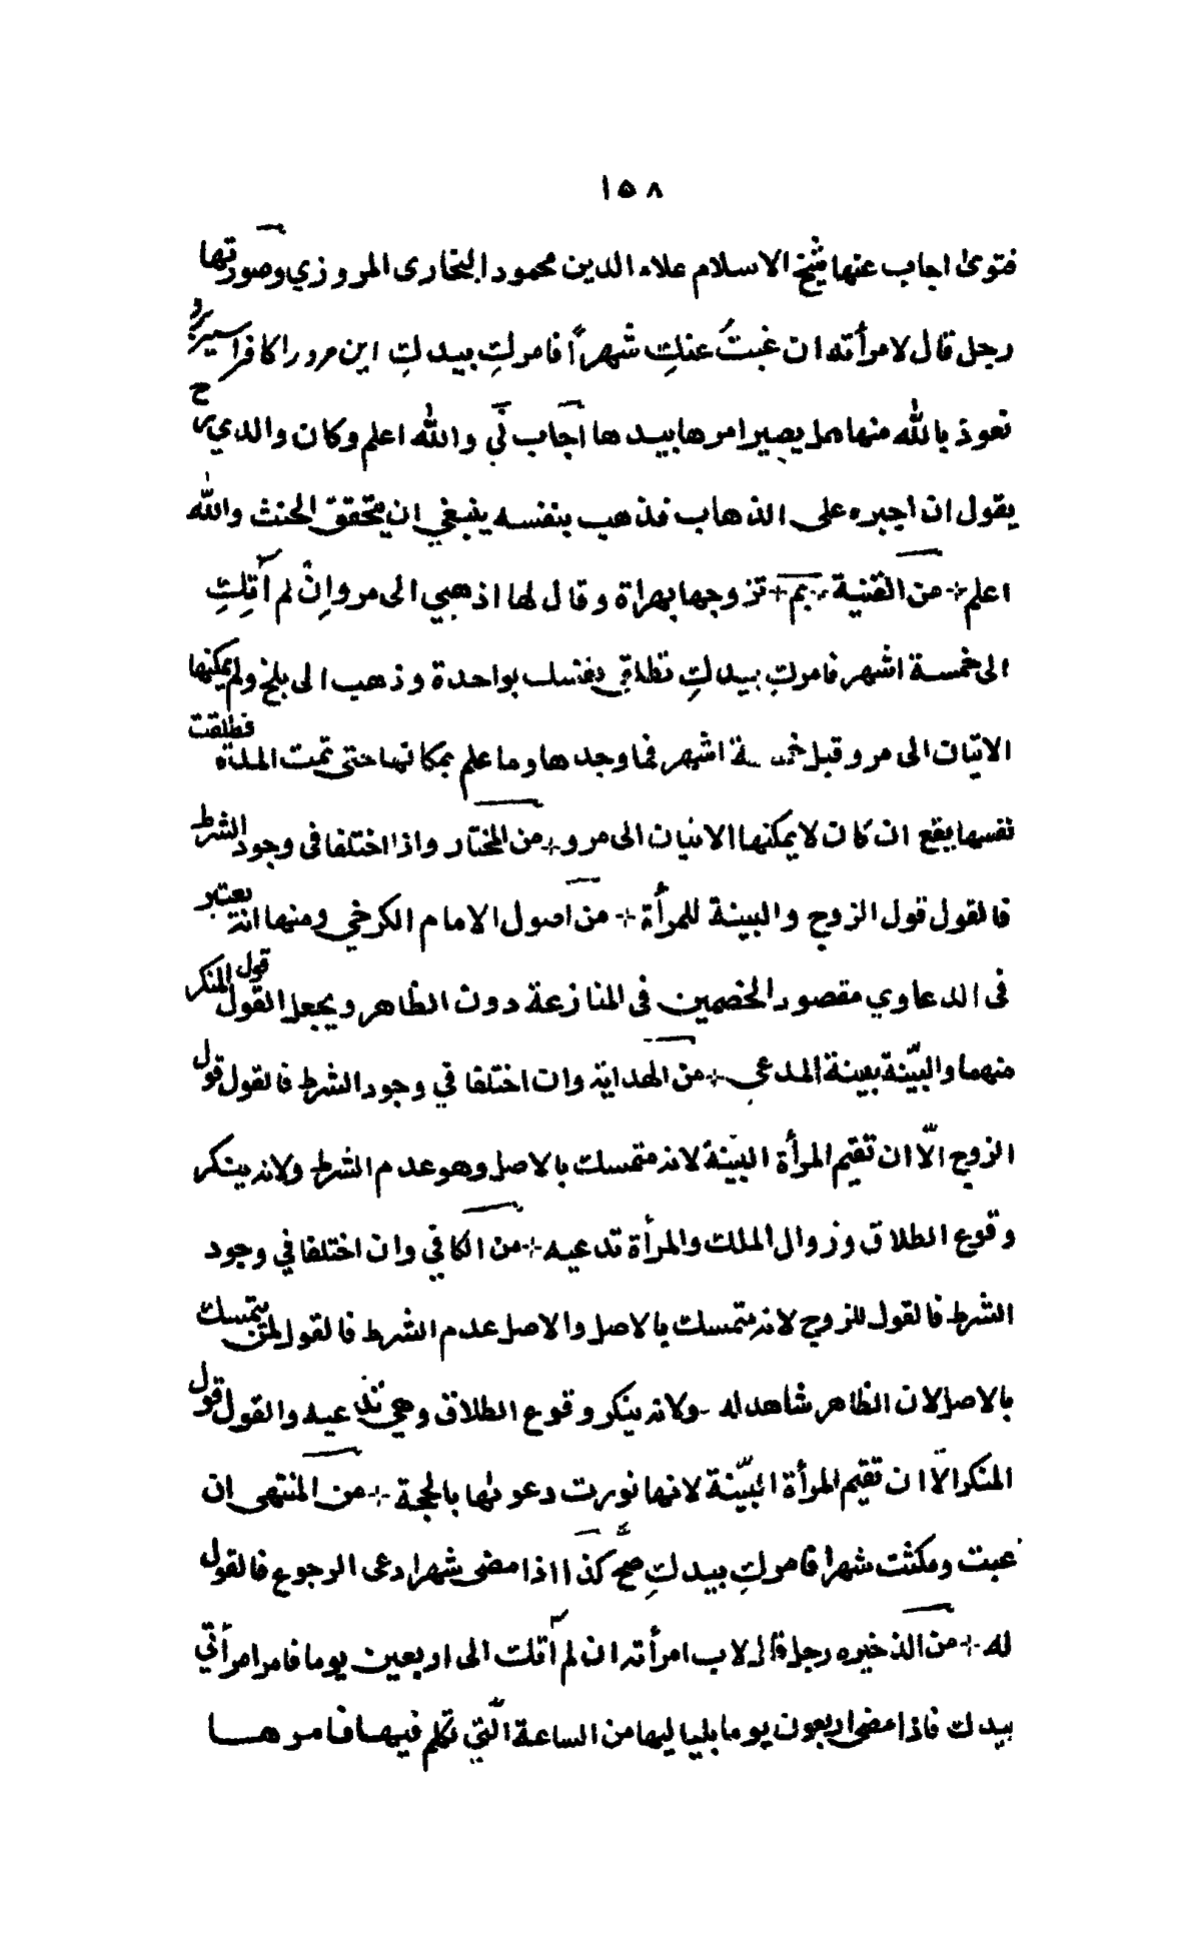 ١٥٨
فتوىٰ اجاب عنها شيخ الاسلام علاء الدين محمود البخارى المروزي وصورتها
رجل قال لامرأته ان غبتُ عنكِ شهراً فامركِ بيدكِ اين مرد را كافر اسير برد
نعوذ بالله منها هل يصير امرها بيدها اجاب نَي والله اعلم وكان والدي رح
يقول ان اجبره على الذهاب فذهب بنفسه ينبغي ان يتحقق الحنث والله
اعلم + من القنية + بم + تزوجها بهراة وقال لها اذهبي الى مرو وإنْ لم آتِكِ
الى خمسة اشهر فامركِ بيدكِ تطلقي نفسك بواحدة وذهب الى بلخ ولم يمكنها
الاتيان الى مرو قبل خمسة اشهر فما وجدها وما علم بمكانها حتى تمت المدة فطلقت
نفسها يقع ان كان لا يمكنها الاتيان الى مرو + من المختار واذا اختلفا فى وجود الشرط
فالقول قول الزوج والبينة للمرأة + من اصول الامام الكرخي ومنها انه يعتبر
فى الدعاوي مقصود الخصمين فى المنازعة دون الظاهر ويجعل القول قول المنكر
منهما والبيّنة بينة المدعي + من الهداية وان اختلفا في وجود الشرط فالقول قول
الزوج الّا ان تقيم المرأة البيّنة لانه متمسك بالاصل وهو عدم الشرط ولانه ينكر
وقوع الطلاق وزوال الملك والمرأة تدعيه + من الكافي وان اختلفا في وجود
الشرط فالقول للزوج لانه متمسك بالاصل والاصل عدم الشرط فالقول لمن يتمسك
بالاصل لان الظاهر شاهد له ولانه ينكر وقوع الطلاق وهي تدعيه والقول قول
المنكر الّا ان تقيم المرأة البيّنة لانها نورت دعواها بالحجة + من المنتهى ان
غبت ومكثت شهرا فامركِ بيدكِ صحّ كذا اذا مضى شهر ادعى الرجوع فالقول
له + من الذخيره رجل قال لاب امرأته ان لم آتك الى اربعين يوما فامر امرأتي
بيدك فاذا مضى اربعون يوما بلياليها من الساعة الّتي تكلم فيها فامرها